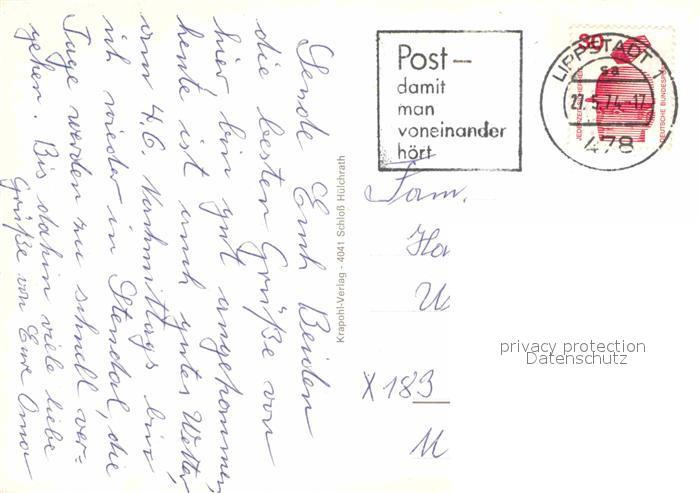 Sende Euch Beiden
die besten Grüße von
hier, bin gut angekommen,
heute ist auch gutes Wetter,
am 4.6. Nachmittags bin
ich wieder in Stendal, die
Tage werden zu schnell ver=
gehen. Bis dahin viele liebe
Grüße von Eure Oma
Krapohl-Verlag - 4041 Schloß Hülchrath
Post-
damit
man
voneinander
hört
LIPPSTADT 1
sa
-17
478
30
JEDERZEIT SICHERHEIT
DEUTSCHE BUNDESPOST
Fam.
Ha
U
X 183
M
privacy protection
Datenschutz